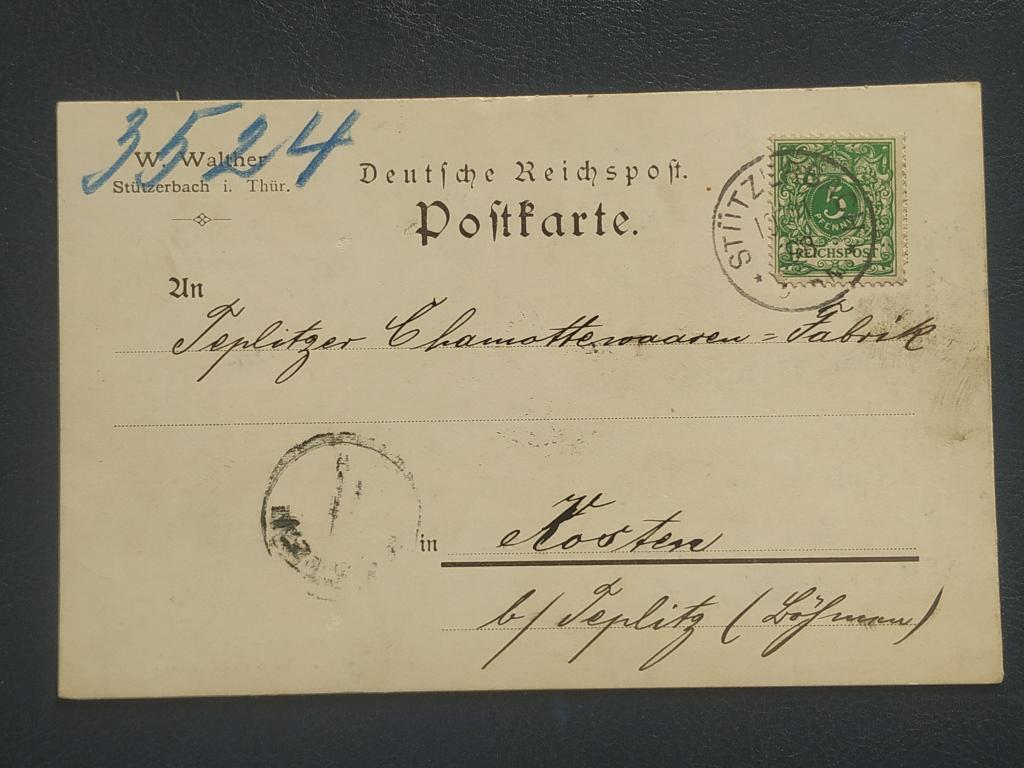 3524
W. Walther
Stützerbach i. Thür.
Deutsche Reichspost.
Postkarte.
5
PFENNIG
REICHSPOST
An
Teplitzer Chamottewaaren=Fabrik
in Kosten
b/ Teplitz (Böhmen)